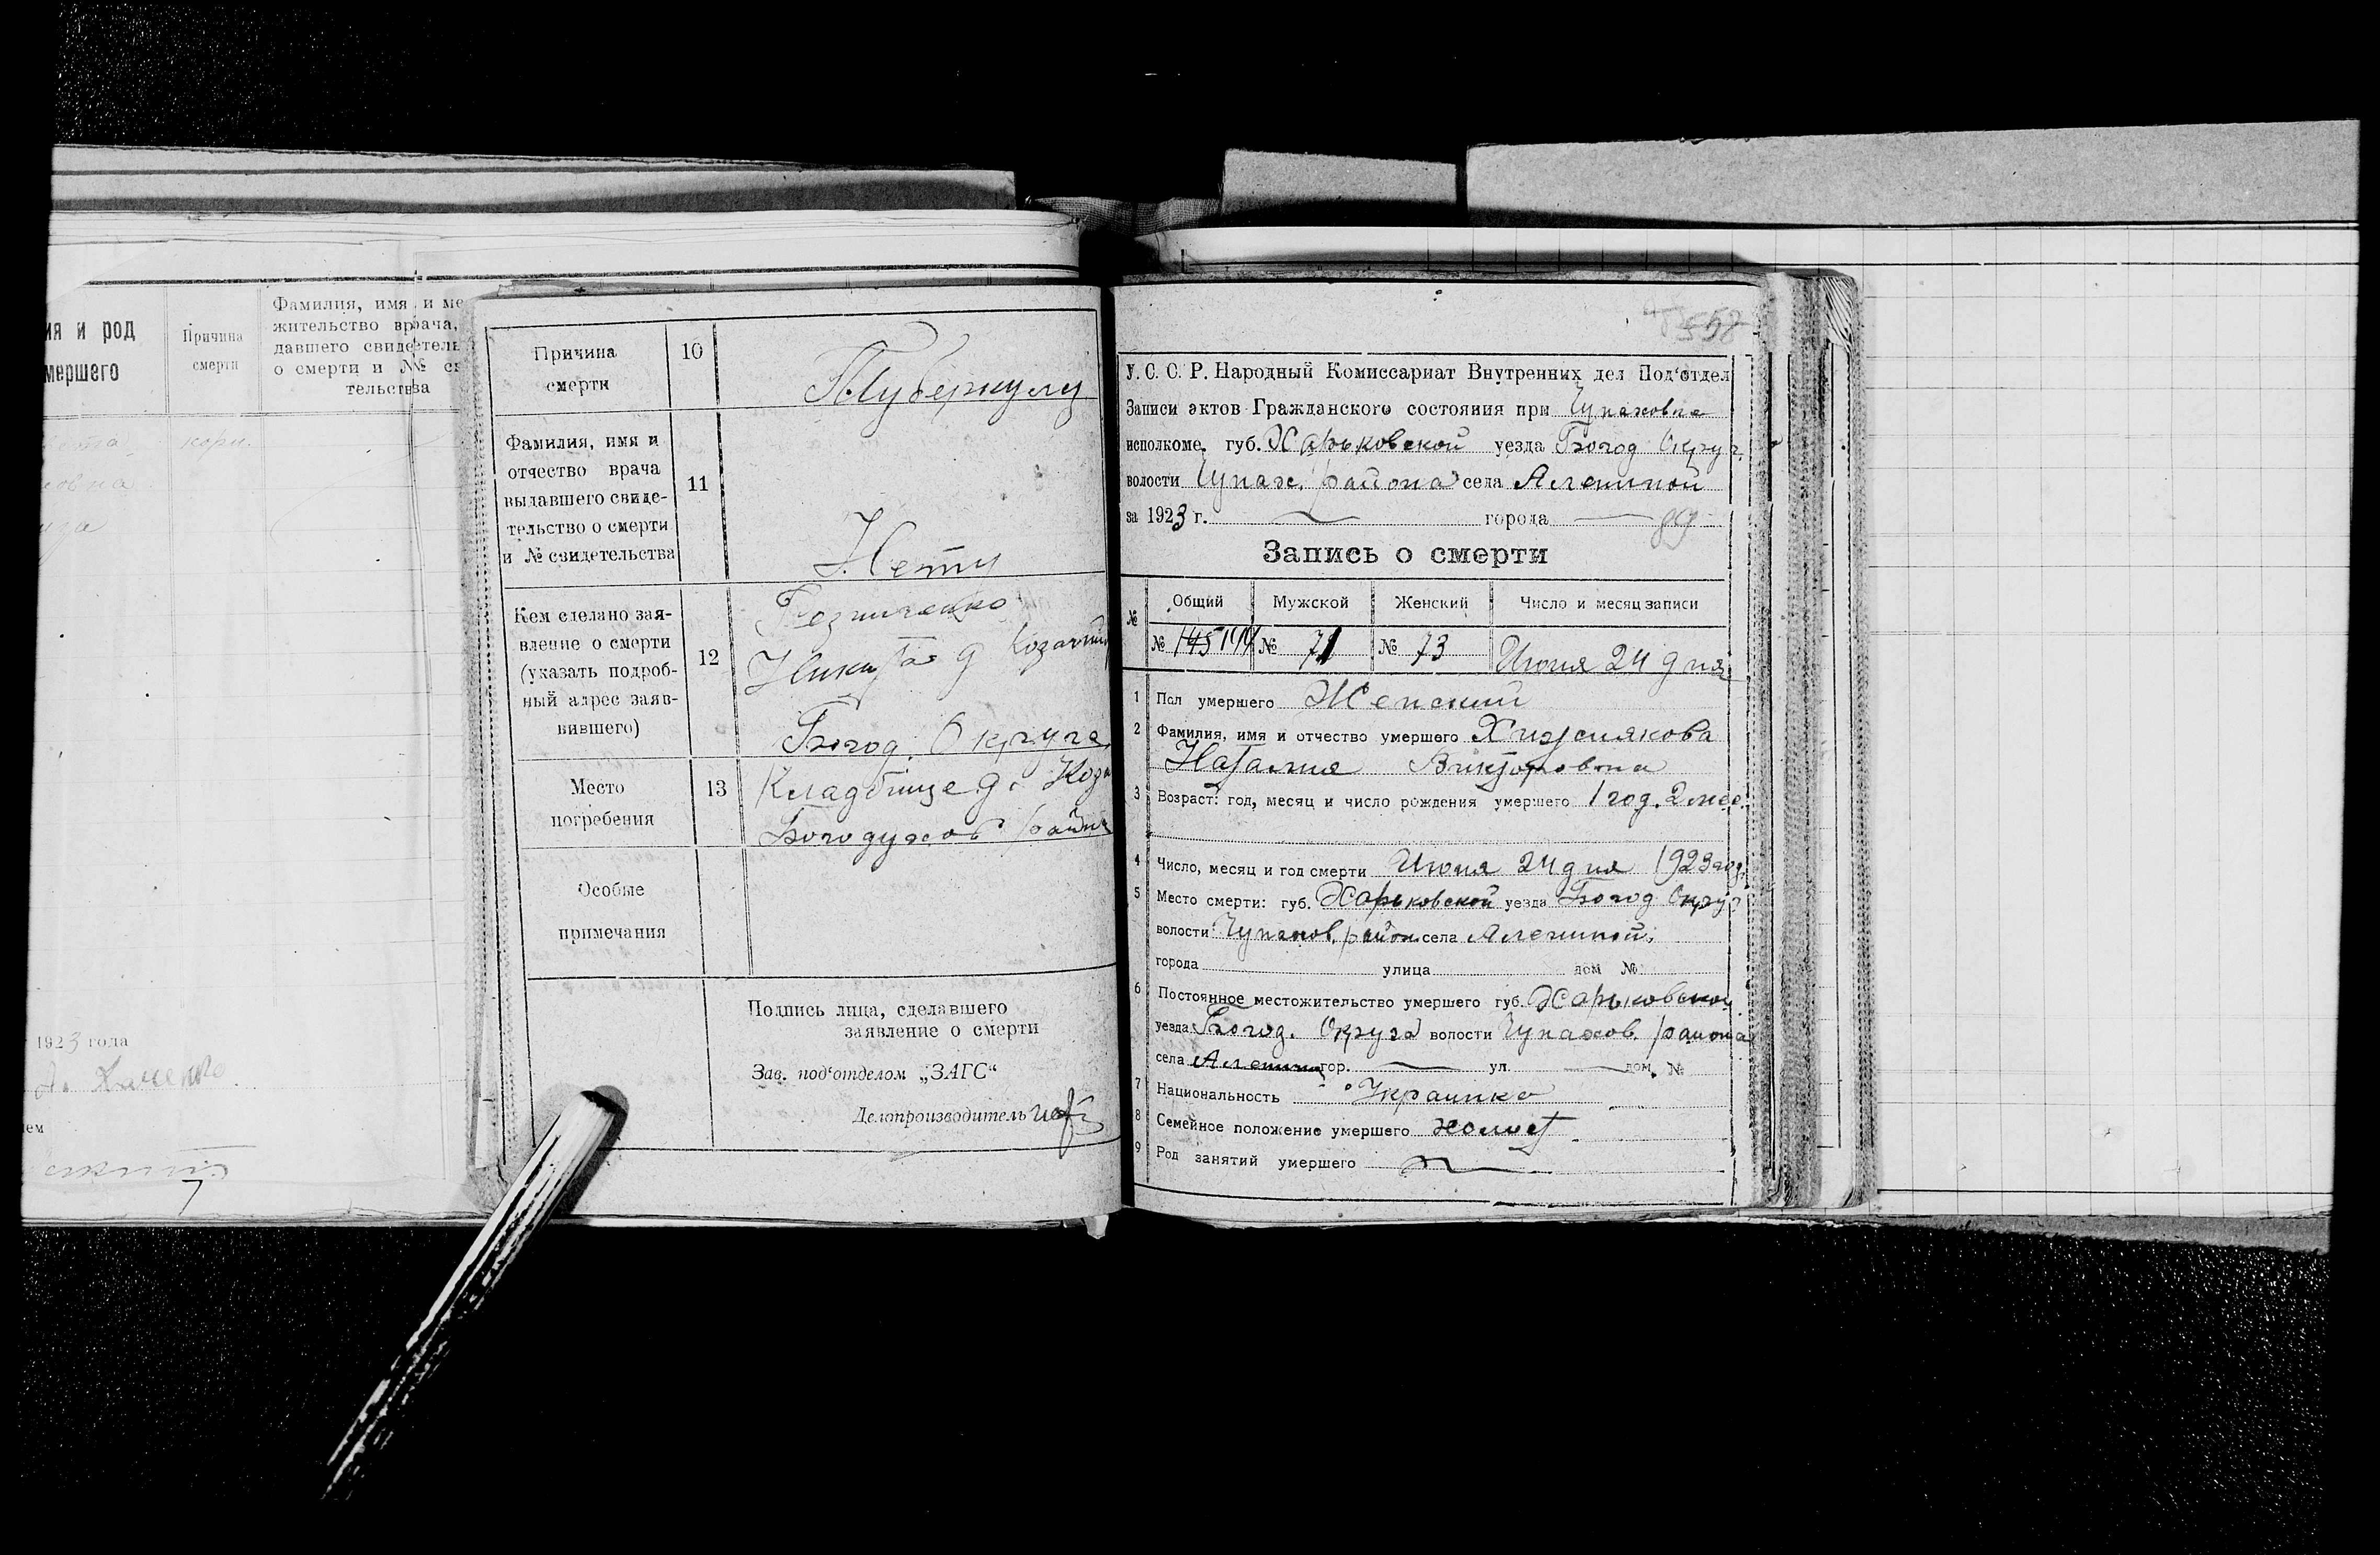 ия и род
мершего
Причина
смерти
Фамилия, имя и ме
жительство врача,
давшего свидетель
о смерти и №№ св
тельства
кори.
овна
1923 года
ем
7
Причина
смерти
10
Туберкулз
Фамилия, имя и
отчество врача
выдавшего свиде-
тельство о смерти
и № свидетельства
11
Нету
Кем сделано зая-
вление о смерти
(указать подроб-
ный адрес заяв-
вившего)
12
Никита д
Богод. Округа
Место
погребения
13
Кладбище д. Коза
Богодухов района
Особые
примечания
Подпись лица, сделавшего
заявление о смерти
Зав. под'отделом „ЗАГС“
Делопроизводитель
558
У. С. С. Р. Народный Комиссариат Внутренних дел Под'отдел
Записи актов Гражданского состояния при Чупаховке
исполкоме. губ. Харьковской уезда Богод Округ
волости Чупах. района села Алениной
за 1923 г. города 89
Запись о смерти
№
Общий Мужской Женский Число и месяц записи
№ 145 144 № 71 № 73 Июня 24 дня
1 Пол умершего Женский
2 Фамилия, имя и отчество умершего Хижнякова
Наталия Викторовна
3 Возраст: год, месяц и число рождения умершего 1 год. 2 мес.
4 Число, месяц и год смерти Июня 24 дня 1923 год.
5 Место смерти: губ. Харьковской уезда Богод Округ
волости Чупахов. район села Алениной.
города улица дом №
6 Постоянное местожительство умершего губ. Харьковской
уезда Богод. Округа волости Чупахов. района
села Аленин гор. ул. дом. №
7 Национальность Украинка
8 Семейное положение умершего холост
9 Род занятий умершего